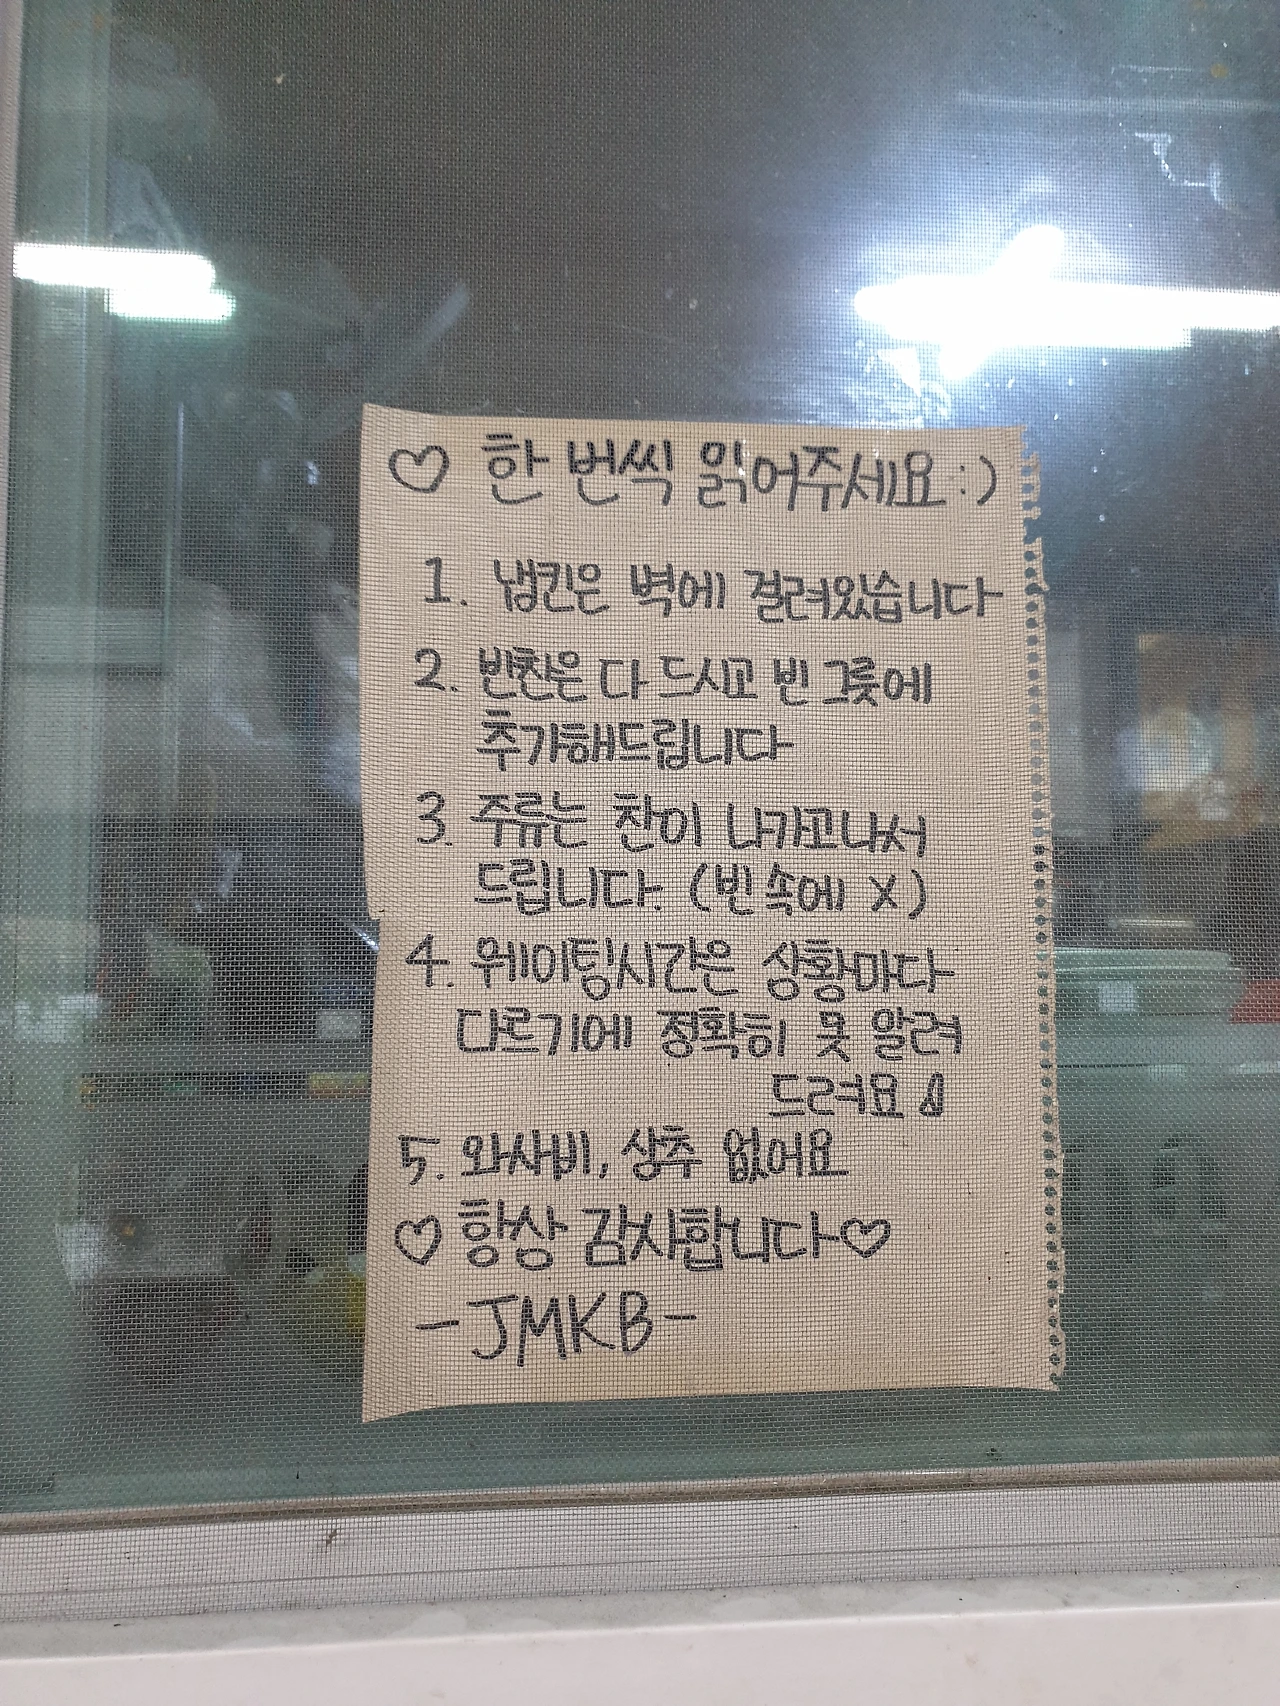 ♡ 한 번씩 읽어주세요 :)
1. 냅킨은 벽에 걸려있습니다
2. 빈찬은 다 드시고 빈 그릇에
추가해드립니다
3. 주류는 찬이 나가고나서
드립니다. (빈 속에 X)
4. 웨이팅시간은 상황마다
다르기에 정확히 못 알려
드려요
5. 와사비, 상추 없어요
♡ 항상 감사합니다 ♡
- JMKB -